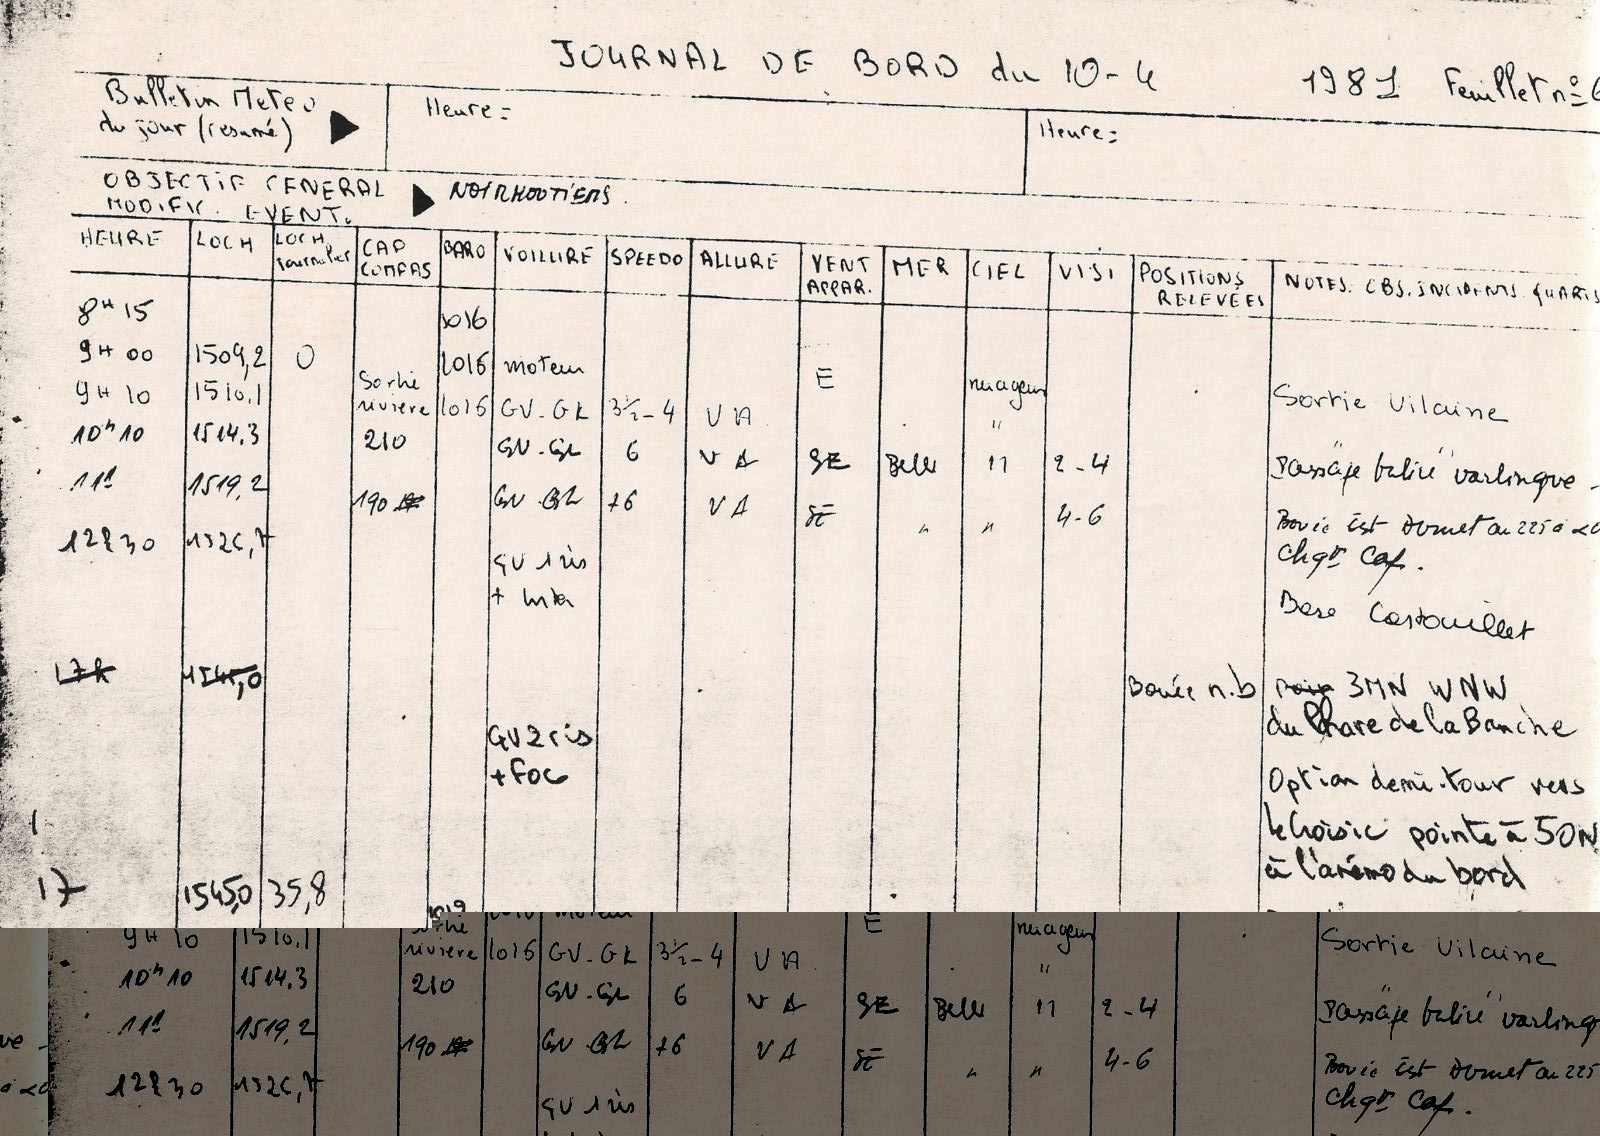 JOURNAL DE BORD du 10-4 1981 Feuillet n° 6
Bulletin Meteo
du jour (resumé)
Heure:
Heure:
OBJECTIF GENERAL
MODIFIC. EVENT.
NOIRMOUTIERS.
HEURE LOCH LOCH journalier CAP COMPAS BARO VOILURE SPEEDO ALLURE VENT APPAR. MER CIEL VISI POSITIONS RELEVEES NOTES. OBS. INCIDENTS. QUARTS
8H15 1016
9H00 1509,2 0 1016 moteur E nuageux
9H10 1510,1 Sortie rivière 1016 GV-GL 3½-4 VA " Sortie Vilaine
10h10 1514.3 210 GV-GL 6 VA SE Belle " 2-4 Passage balise "varlingue"
11h 1519,2 190 GV-GL +6 VA SE " " 4-6 Bouée Est Dumet au 225 à
Chgt Cap.
12h30 1526,7 GV 1 ris
+ Inter
Base Castouillet
17h 1545,0 Bouée n.b 3MN WNW
du Phare de la Banche
GV 2 ris
+ Foc
Option demi-tour vers
le Croisic pointe à 50N
à l'anémo du bord
17 1545,0 35,8
1019
9H10 1510,1 Sortie rivière 1016 GV-GL 3½-4 VA E nuageux Sortie Vilaine
10h10 1514.3 210 GV-GL 6 VA SE Belle " 2-4 Passage balise "varlingue
11h 1519,2 190 GV-GL +6 VA SE " " 4-6 Bouée Est Dumet au 225
Chgt Cap.
12h30 1526,7 GV 1 ris